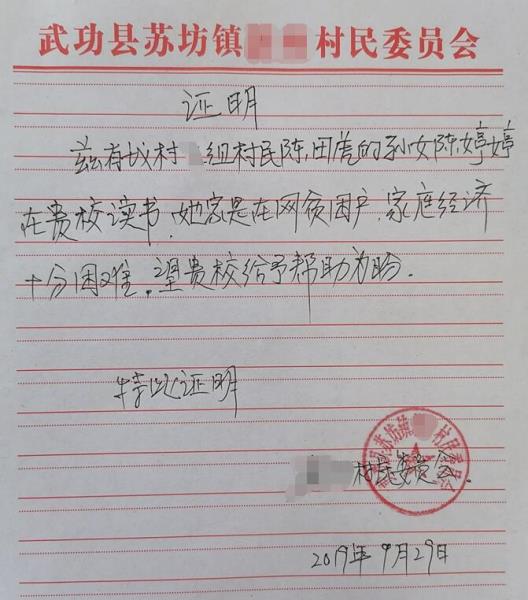 武功县苏坊镇村民委员会
证明
兹有我村组村民陈田虎的孙女陈婷婷
在贵校读书，她家是在网贫困户，家庭经济
十分困难，望贵校给予帮助为盼．
特此证明
苏坊镇村民委员会
村民委员会．
2019年9月29日